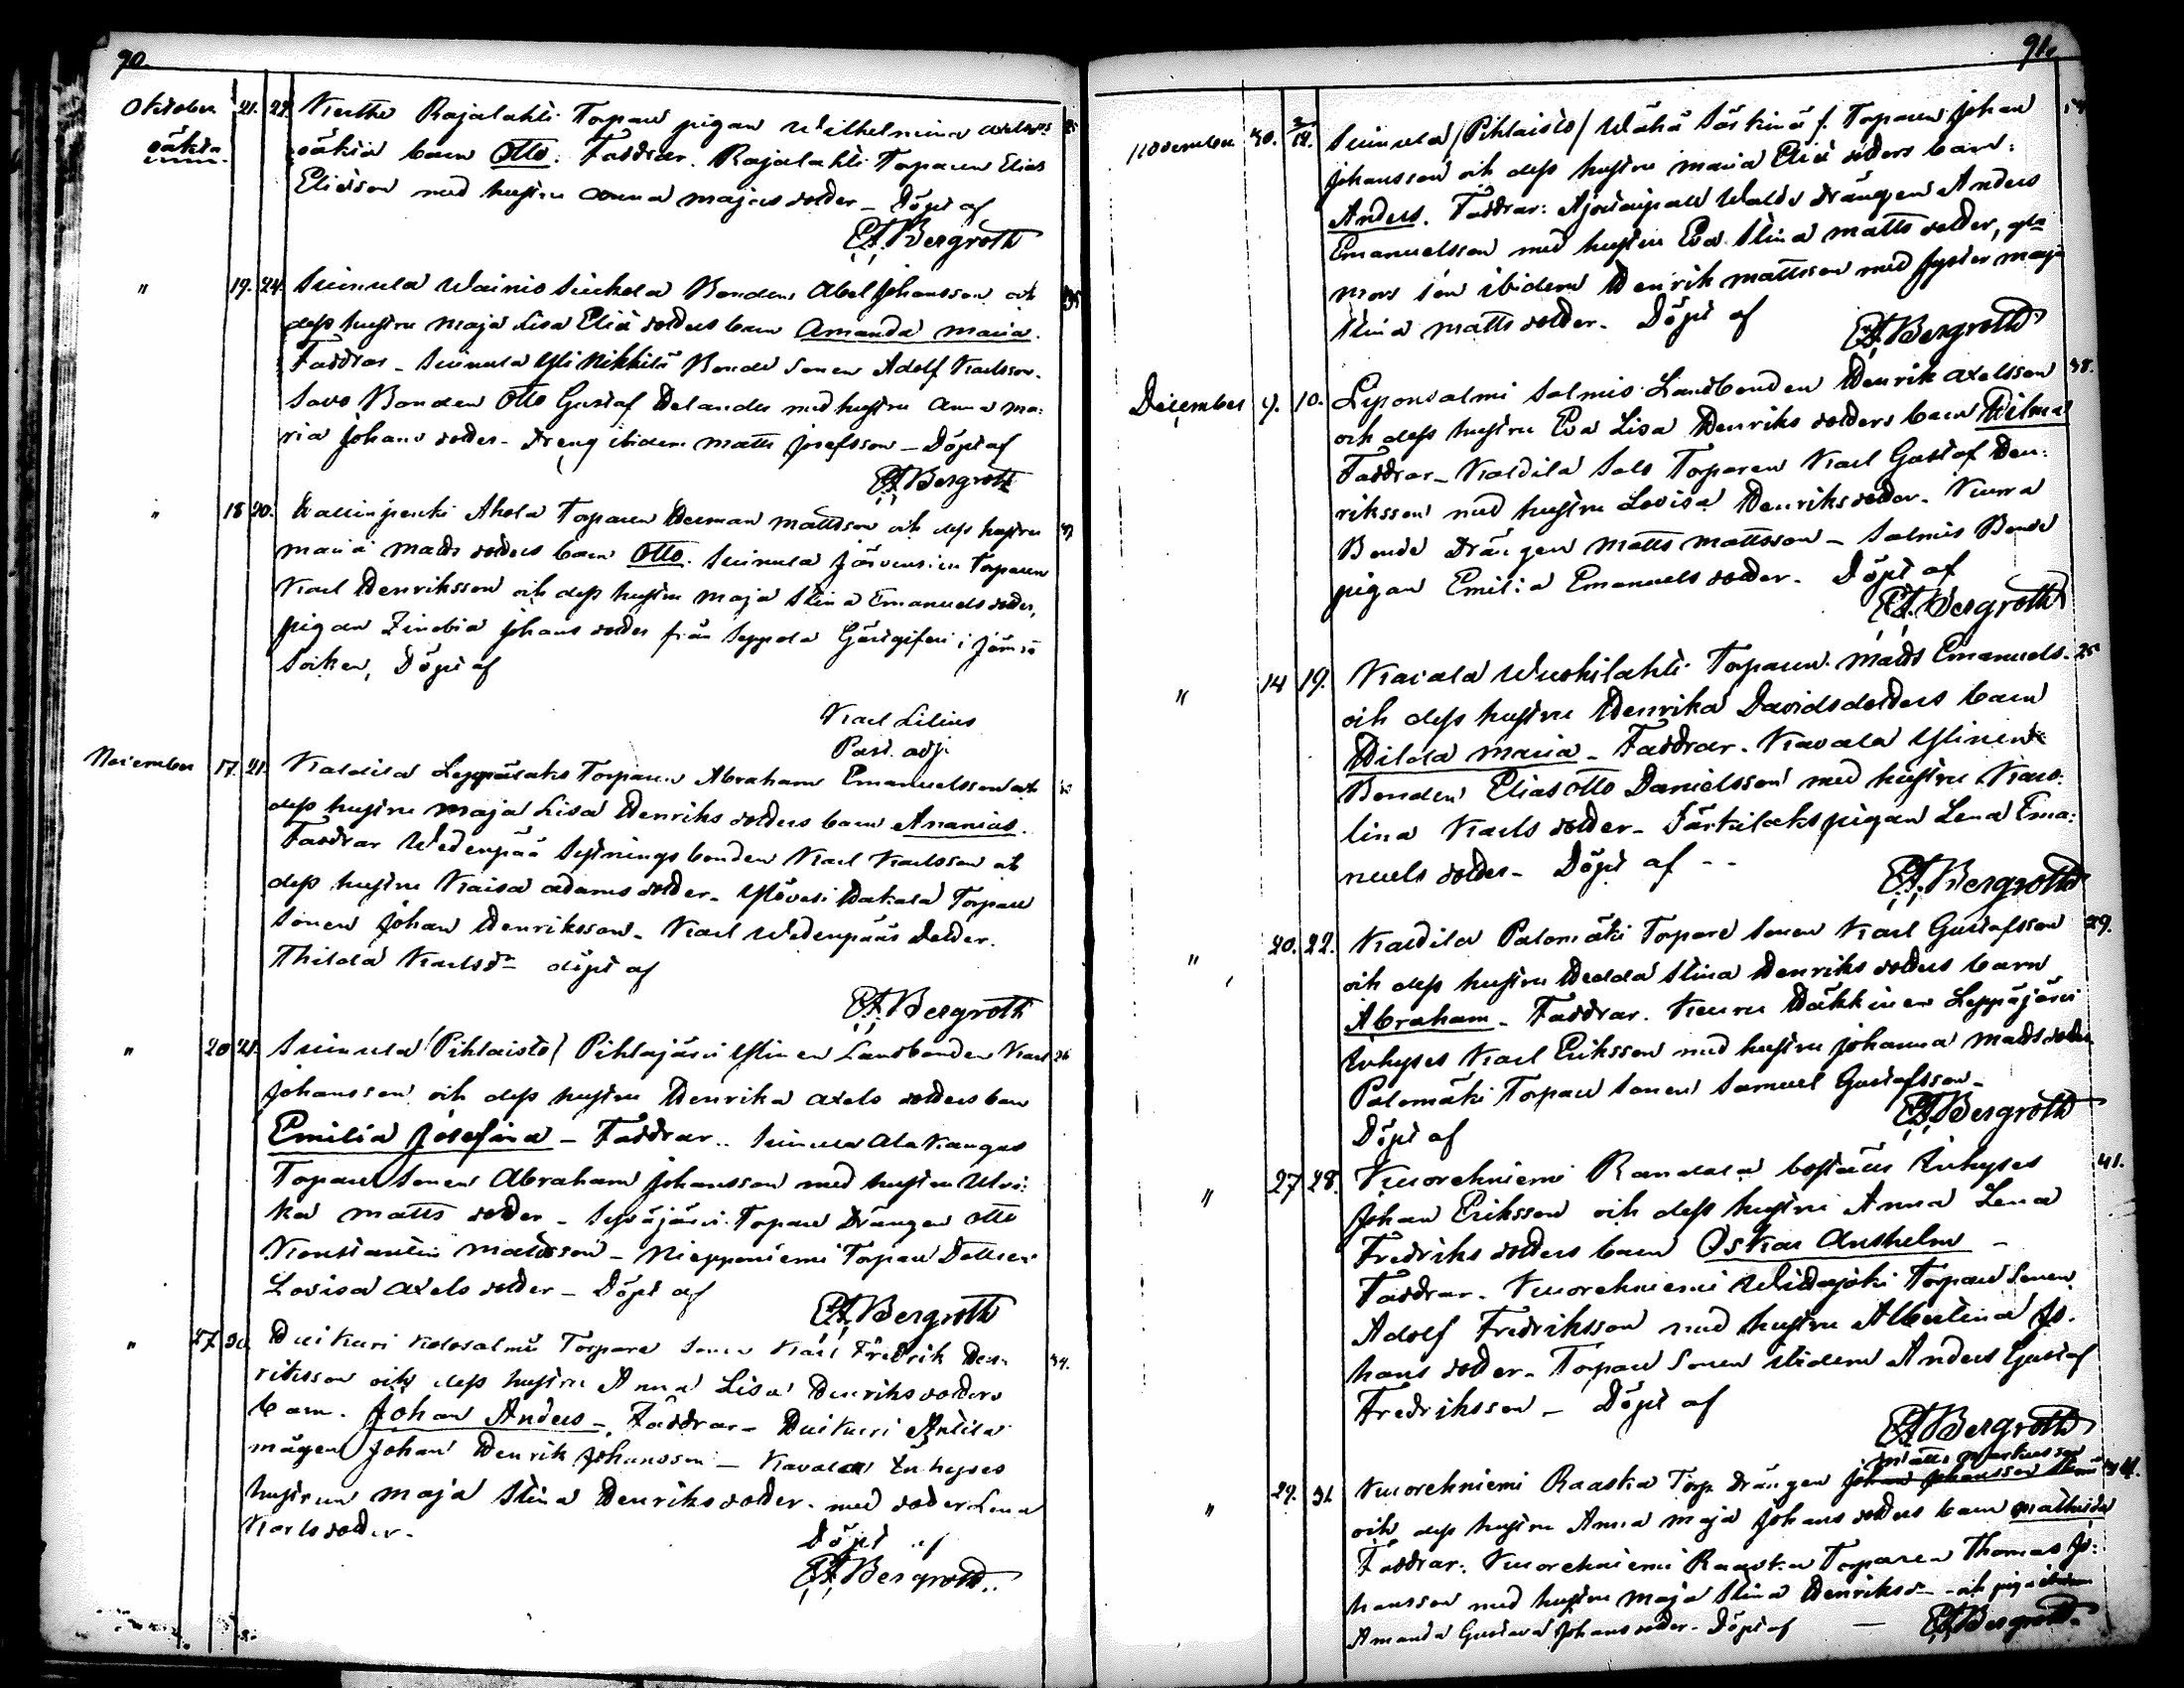 90.
Oktober 21. 29. Keuthe Rajalahti Torpare pigan Wilhelmina
oäkta oäkta barn Otto. Faddrar. Rajalahti Torparen Elias
Eliasson med hustru Anna Majas dotter – Döpt af
E.A. Bergroth
" 19. 24. Suinula Wainio Sinkola Bonden Abel Johansson och 35
dess hustru Maja Lisa Eliä dotters barn Amanda Maria.
Faddrar – Suinula Yli Nikkilä Bonde Sonen Adolf Karlsson.
Savo Bonden Otto Gustaf Helander med hustru Anna Ma:
ria Johans dotter – Dreng ibidem Matts Josefsson – Döpt af
E.A. Bergroth
" 18 20. Ahola Torparen Herman Mattsson och dess hustru
Maria Matts dotters barn Otto. Suinula Järvensivu Torparen
Karl Henriksson och dess hustru Maja Stina Emanuels dotter,
pigan Zinobia Johans dotter från Seppola Gästgifveri i Jämsä
Socken, Döpt af
Karl Lilius
Past. adj.
November 17. 21. Kaldila Leppälaks Torparen Abraham Emanuelsson och
dess hustru Maja Lisa Henriks dotters barn Ananias.
Faddrar Wedenpää Sytningsbonden Karl Karlsson och
dess hustru Kaisa Adams dotter – Ylövesi Hakala Torpare
Sonen Johan Henriksson – Karl Wedenpääs dotter.
Thilda Karlsdr döpt af
E.A. Bergroth
" 20 21. Suinula (Pihlaisto) Pihlajärvi Ylinen Landbonden Karl 26
Johansson och dess hustru Henrika Axels dotters barn
Emilia Josefina – Faddrar.. Suinula Ala Kangas
Torpare Sonen Abraham Johansson med hustru Ulri:
ka Matts dotter – Syväjärvi Torpare Drängen Otto
Konstantin Mattsson – Niepponiemi Torpare Dottren
Lovisa Axels dotter – Döpt af
E.A. Bergroth
" 27. 30. Huikuri Kolosalmi Torpare Sonen Karl Fredrik Hen: 34.
riksson och dess hustru Anna Lisa Henriksdotters
barn. Johan Anders – Faddrar – Huikuri Anttila
mågen Johan Henrik Johansson – Kavala Inhyses
hustrun Maja Stina Henriksdotter. med dotter Lena
Karlsdotter.
Döpt af
E.A. Bergroth..
91.
November 30. Suinula (Pihlaisto) Wähä Särkinä f. Torparen Johan
Johansson och dess hustru Maria Eliä dotters barn:
Anders. Faddrar: Waldo drängen Anders
Emanuelsson med hustru Eva Stina Matts dotter,
mors son ibidem Henrik Mattsson med syster Maja
Stina Matts dotter – Döpt af
E.A. Bergroth
December 9. 10. Leponsalmi Salmis Landbonden Henrik Axelsson 38.
och dess hustru Eva Lisa Henriks dotters barn Hilma
Faddrar – Kaldila Salo Torparen Karl Gustaf Hen:
riksson med hustru Lovisa Henriksdotter – Kurra
Bonde drängen Matts Mattsson – Salmis Bonde
pigan Emilia Emanuels dotter – Döpt af
E.A. Bergroth
" 14 19. Kavala Wuohilahti Torparen Matts Emanuels. 25
och dess hustru Henrika Davidsdotters barn
Hilda Maria – Faddrar. Kavala Ylinen
Bonden Elias Otto Danielsson med hustru Karo:
lina Karls dotter – Särkilaks pigan Lena Ema:
nuels dotter – Döpt af – –
E.A. Bergroth
" 20. 22. Kaldila Palomäki Torpare Sonen Karl Gustafsson 29.
och dess hustru Hedda Stina Henriks dotters barn
Abraham – Faddrar. Keuru Häkkinen Leppäjärvi
Inhyses Karl Eriksson med hustru Johanna Matts dotter
Palomäki Torpare Sonen Samuel Gustafsson –
Döpt af
E.A. Bergroth
" 27 28. Kuorehniemi Randala 41.
Johan Eriksson och dess hustru Anna Lena
Fredriks dotters barn Oskar Anshelm –
Faddrar – Kuorehniemi Widajoki Torpare Sonen
Adolf Fredriksson med hustru Albertina Jo.
hans dotter – Torpare Sonen ibidem Anders Gustaf
Fredriksson – Döpt af
E.A. Bergroth
Matts Markusson
" 29. 31. Kuorehniemi Raaska Torp. Drängen Johan Johansson
och dess hustru Anna Maja Johans dotters barn Mathilda
Faddrar. Kuorehniemi Raaska Torparen Thomas Jo:
hansson med hustru Maja Stina Henriksdr – och pigan
Amanda Gustava Johans dotter – Döpt af – E.A. Bergroth